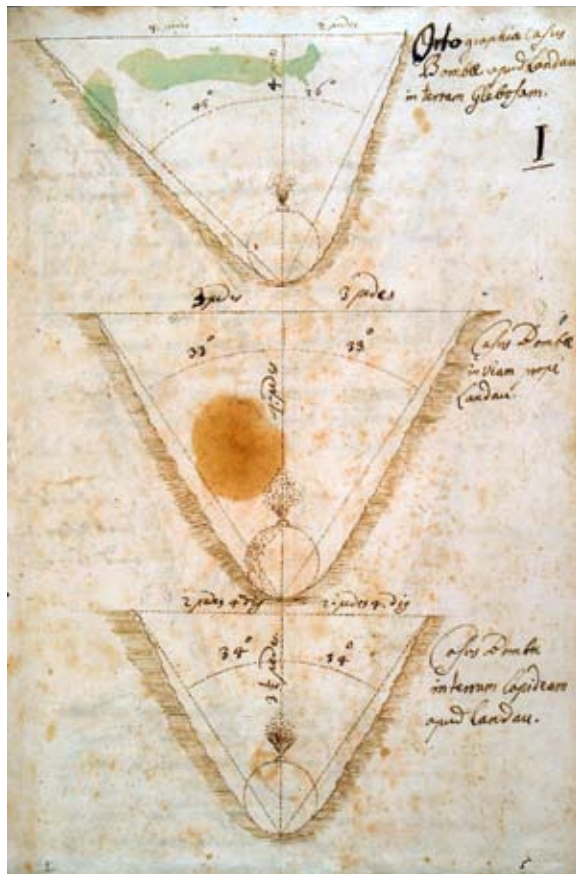 4 pedes 3 pedes
Ortographia Casus
Bombæ apud Landau
in terram Glebosam.
I
4 pedes
45° 36°
3 pedes 3 pedes
33° 33°
Casus Bombæ
in viam prope
Landau.
4 pedes
2 pedes 4 dig 2 pedes 4. dig
34° 34°
3½ pedes
Casus Bombæ
in terram lapideam
apud Landau.